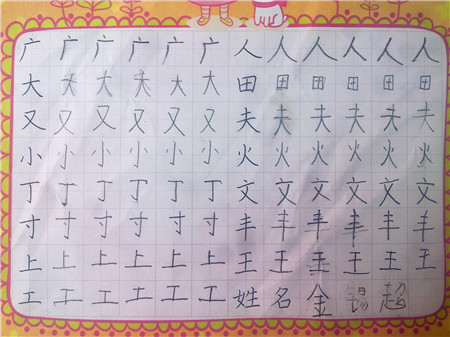 广广广广广广人人人人人人
大大大大大大田田田田田田
又又又又又又夫夫夫夫夫夫
小小小小小小火火火火火火
丁丁丁丁丁丁文文文文文文
寸寸寸寸寸寸丰丰丰丰丰丰
上上上上上上王王王王王王
工工工工工工姓名金超